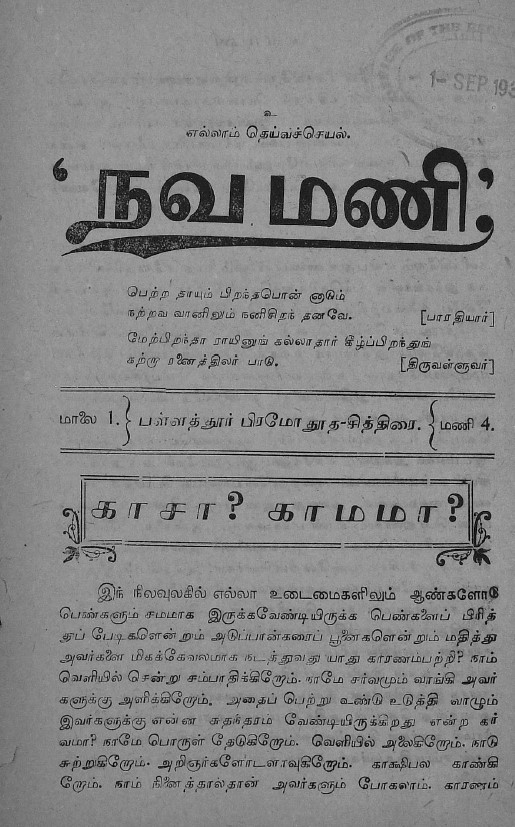 OF THE RE
1- SEP 193
உ
எல்லாம் தெய்வச்செயல்.
‘நவ மணி’
பெற்ற தாயும் பிறந்தபொன் னாடும்
நற்றவ வானினும் நனிசிறந் தனவே. [பாரதியார்]
மேற்பிறந்தா ராயினுங் கல்லாதார் கீழ்ப்பிறந்துங்
கற்றா ரனைத்திலர் பாடு. [திருவள்ளுவர்]
மாலை 1. } பள்ளத்தூர் பிரமோதூத-சித்திரை. { மணி 4.
காசா? காமமா?
இந் நிலவுலகில் எல்லா உடைமைகளிலும் ஆண்களோடு
பெண்களும் சமமாக இருக்கவேண்டியிருக்க பெண்களைப் பிரித்
துப் பேடிகளென்றும் அடுப்பான்கரைப் பூனைகளென்றும் மதித்து
அவர்களை மிகக்கேவலமாக நடத்துவது யாது காரணம்பற்றி? நாம்
வெளியில் சென்று சம்பாதிக்கிறோம். நாமே சர்வமும் வாங்கி அவர்
களுக்கு அளிக்கிறோம். அதைப் பெற்று உண்டு உடுத்தி வாழும்
இவர்களுக்கு என்ன சுதந்தரம் வேண்டியிருக்கிறது என்ற கர்
வமா? நாமே பொருள் தேடுகிறோம். வெளியில் அலைகிறோம். நாடு
சுற்றுகிறோம். அறிஞர்களோடளாவுகிறோம். காக்ஷிபல காண்கி
றோம். நாம் நினைத்தால்தான் அவர்களும் போகலாம். காரணம்